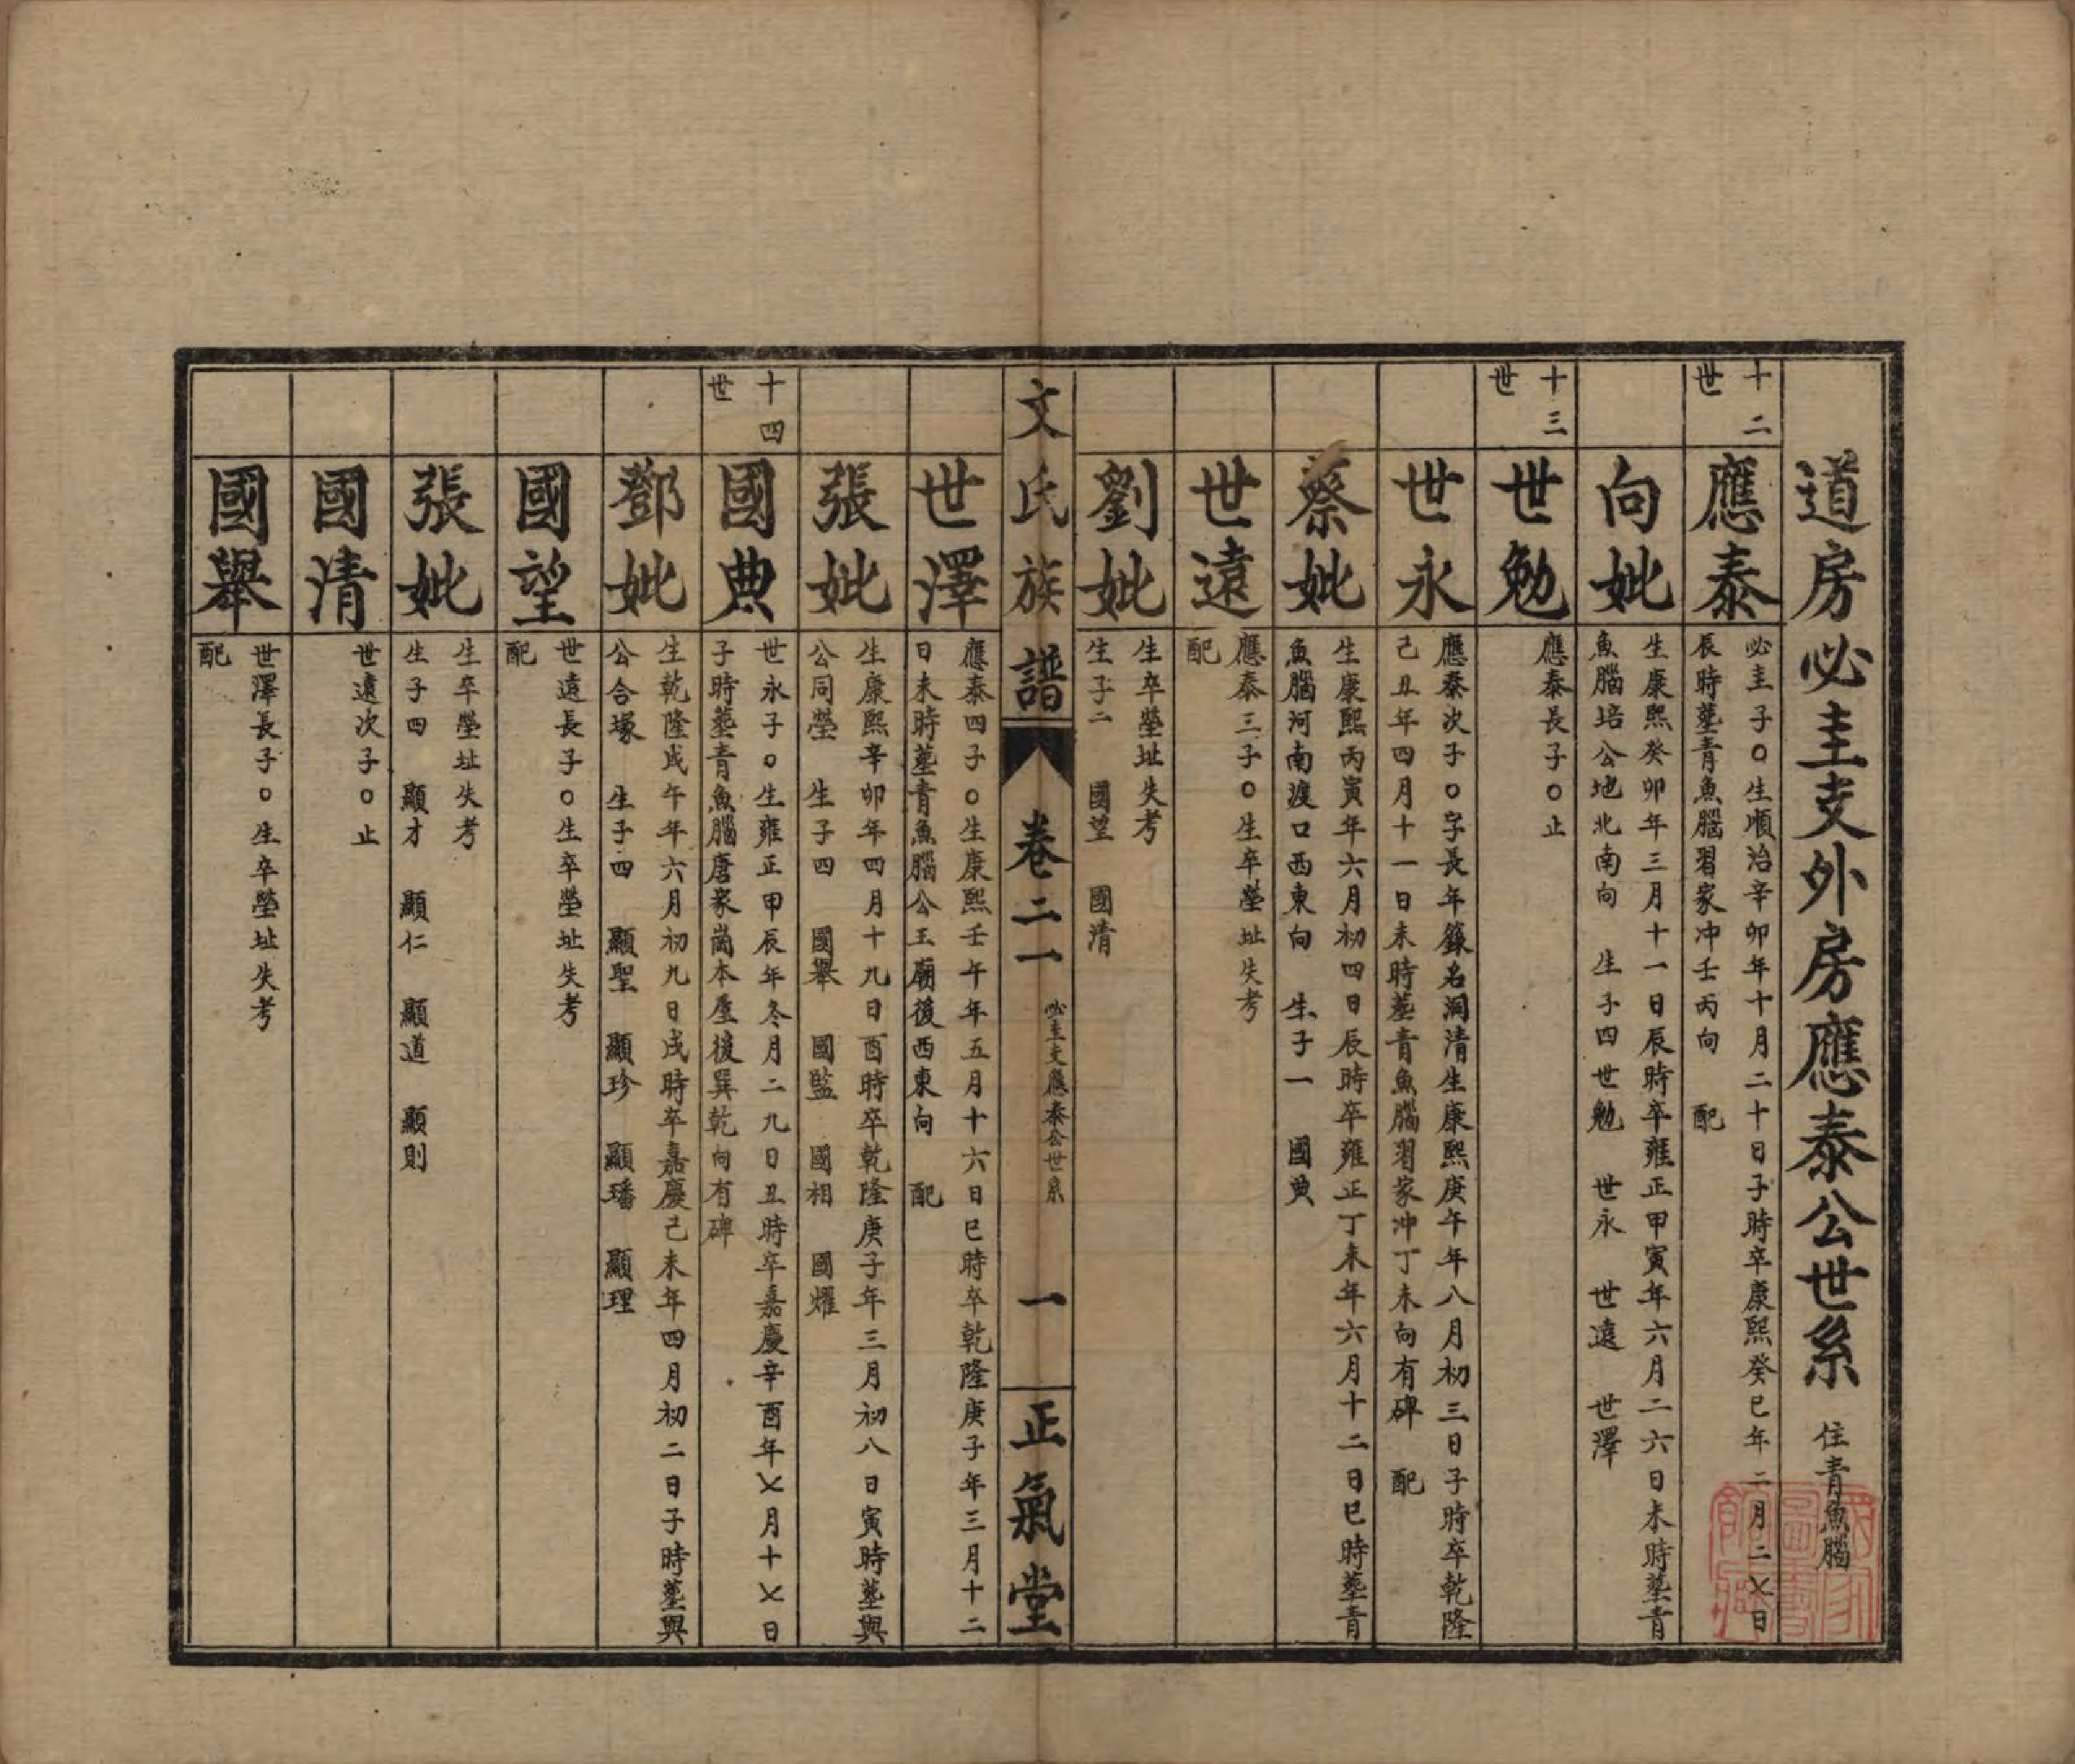 道房必圭支外房應泰公世系 住青魚腦
十二世
應泰
必圭子○生順治辛卯年十月二十日子時卒康熙癸巳年二月二〤日
辰時塟青魚腦習家冲壬丙向 配
向妣
生康熙癸卯年三月十一日辰時卒雍正甲寅年六月二六日未時塟青
魚腦培公地北南向 生子四世勉 世永 世遠 世澤
十三世
世勉
應泰長子○止
世永
應泰次子○字長年籙名洞清生康熙庚午年八月初三日子時卒乾隆
己丑年四月十一日未時塟青魚腦習家冲丁未向有碑 配
蔡妣
生康熙丙寅年六月初四日辰時卒雍正丁未年六月十二日巳時塟青
魚腦河南渡口西東向 生子一 國典
世遠
應泰三子○生卒塋址失考
配
劉妣
生卒塋址失考
生子二 國望 國清
文氏族譜 卷二一 必圭支應泰公世系 一 正氣堂
世澤
應泰四子○生康熙壬午年五月十六日巳時卒乾隆庚子年三月十二
日未時塟青魚腦公王廟後西東向 配
張妣
生康熙辛卯年四月十九日酉時卒乾隆庚子年三月初八日寅時塟與
公同塋 生子四 國舉 國監 國相 國燿
十四世
國典
世永子○生雍正甲辰年冬月二九日丑時卒嘉慶辛酉年〤月十〤日
子時塟青魚腦唐家崗本屋後巽乾向有碑
鄧妣
生乾隆戊午年六月初九日戌時卒嘉慶己未年四月初二日子時塟與
公合塚 生子四 顯聖 顯珍 顯璠 顯理
國望
世遠長子○生卒塋址失考
配
張妣
生卒塋址失考
生子四 顯才 顯仁 顯道 顯則
國清
世遠次子○止
國舉
世澤長子○生卒塋址失考
配